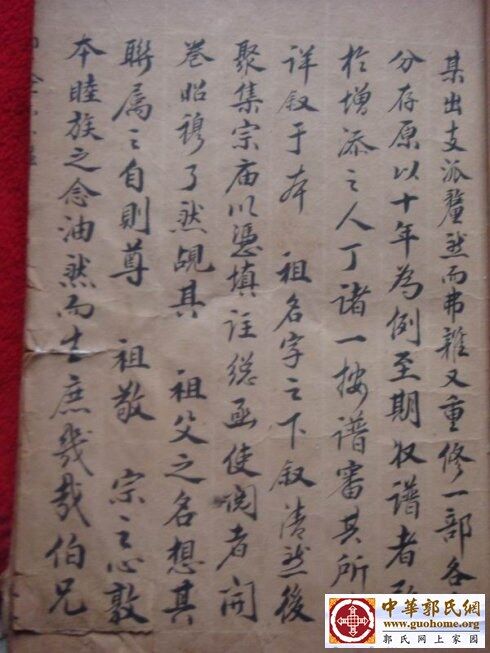 某出支派釐然而弗雜又重修一部各
分存原以十年為例至期收譜者
於增添之人丁諸一按譜審其所
详叙于本 祖名字之下叙清然後
聚集宗庙以憑填註總函使阅者開
卷昭穆了然覩其 祖父之名想其
聯属之自則尊 祖敬 宗之心敦
本睦族之念油然而生庶幾哉伯兄
中華郭氏網
www.guohome.org
郭氏网上家园